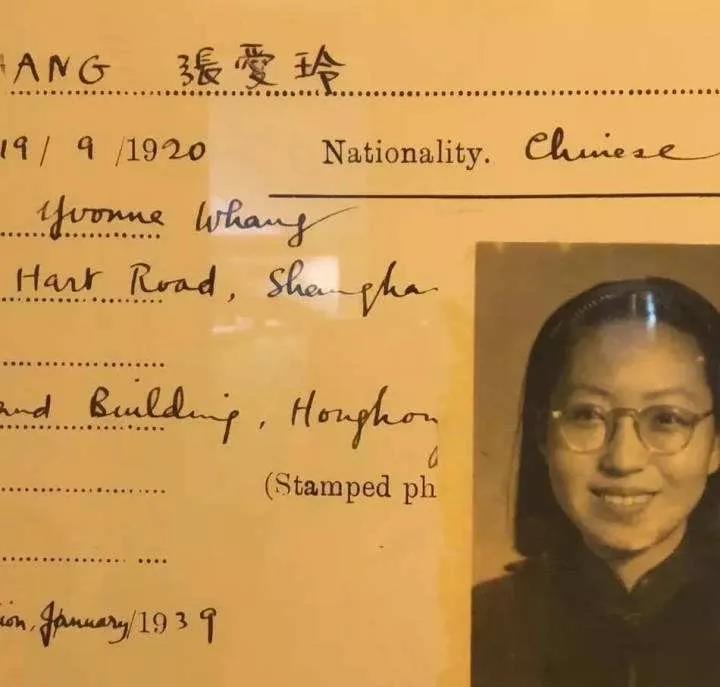 HANG 張愛玲
19/ 9 /1920 Nationality. Chinese
Yvonne Whang
Hart Road, Shangha
and Building, Hongkong
(Stamped ph
ion, January/1939